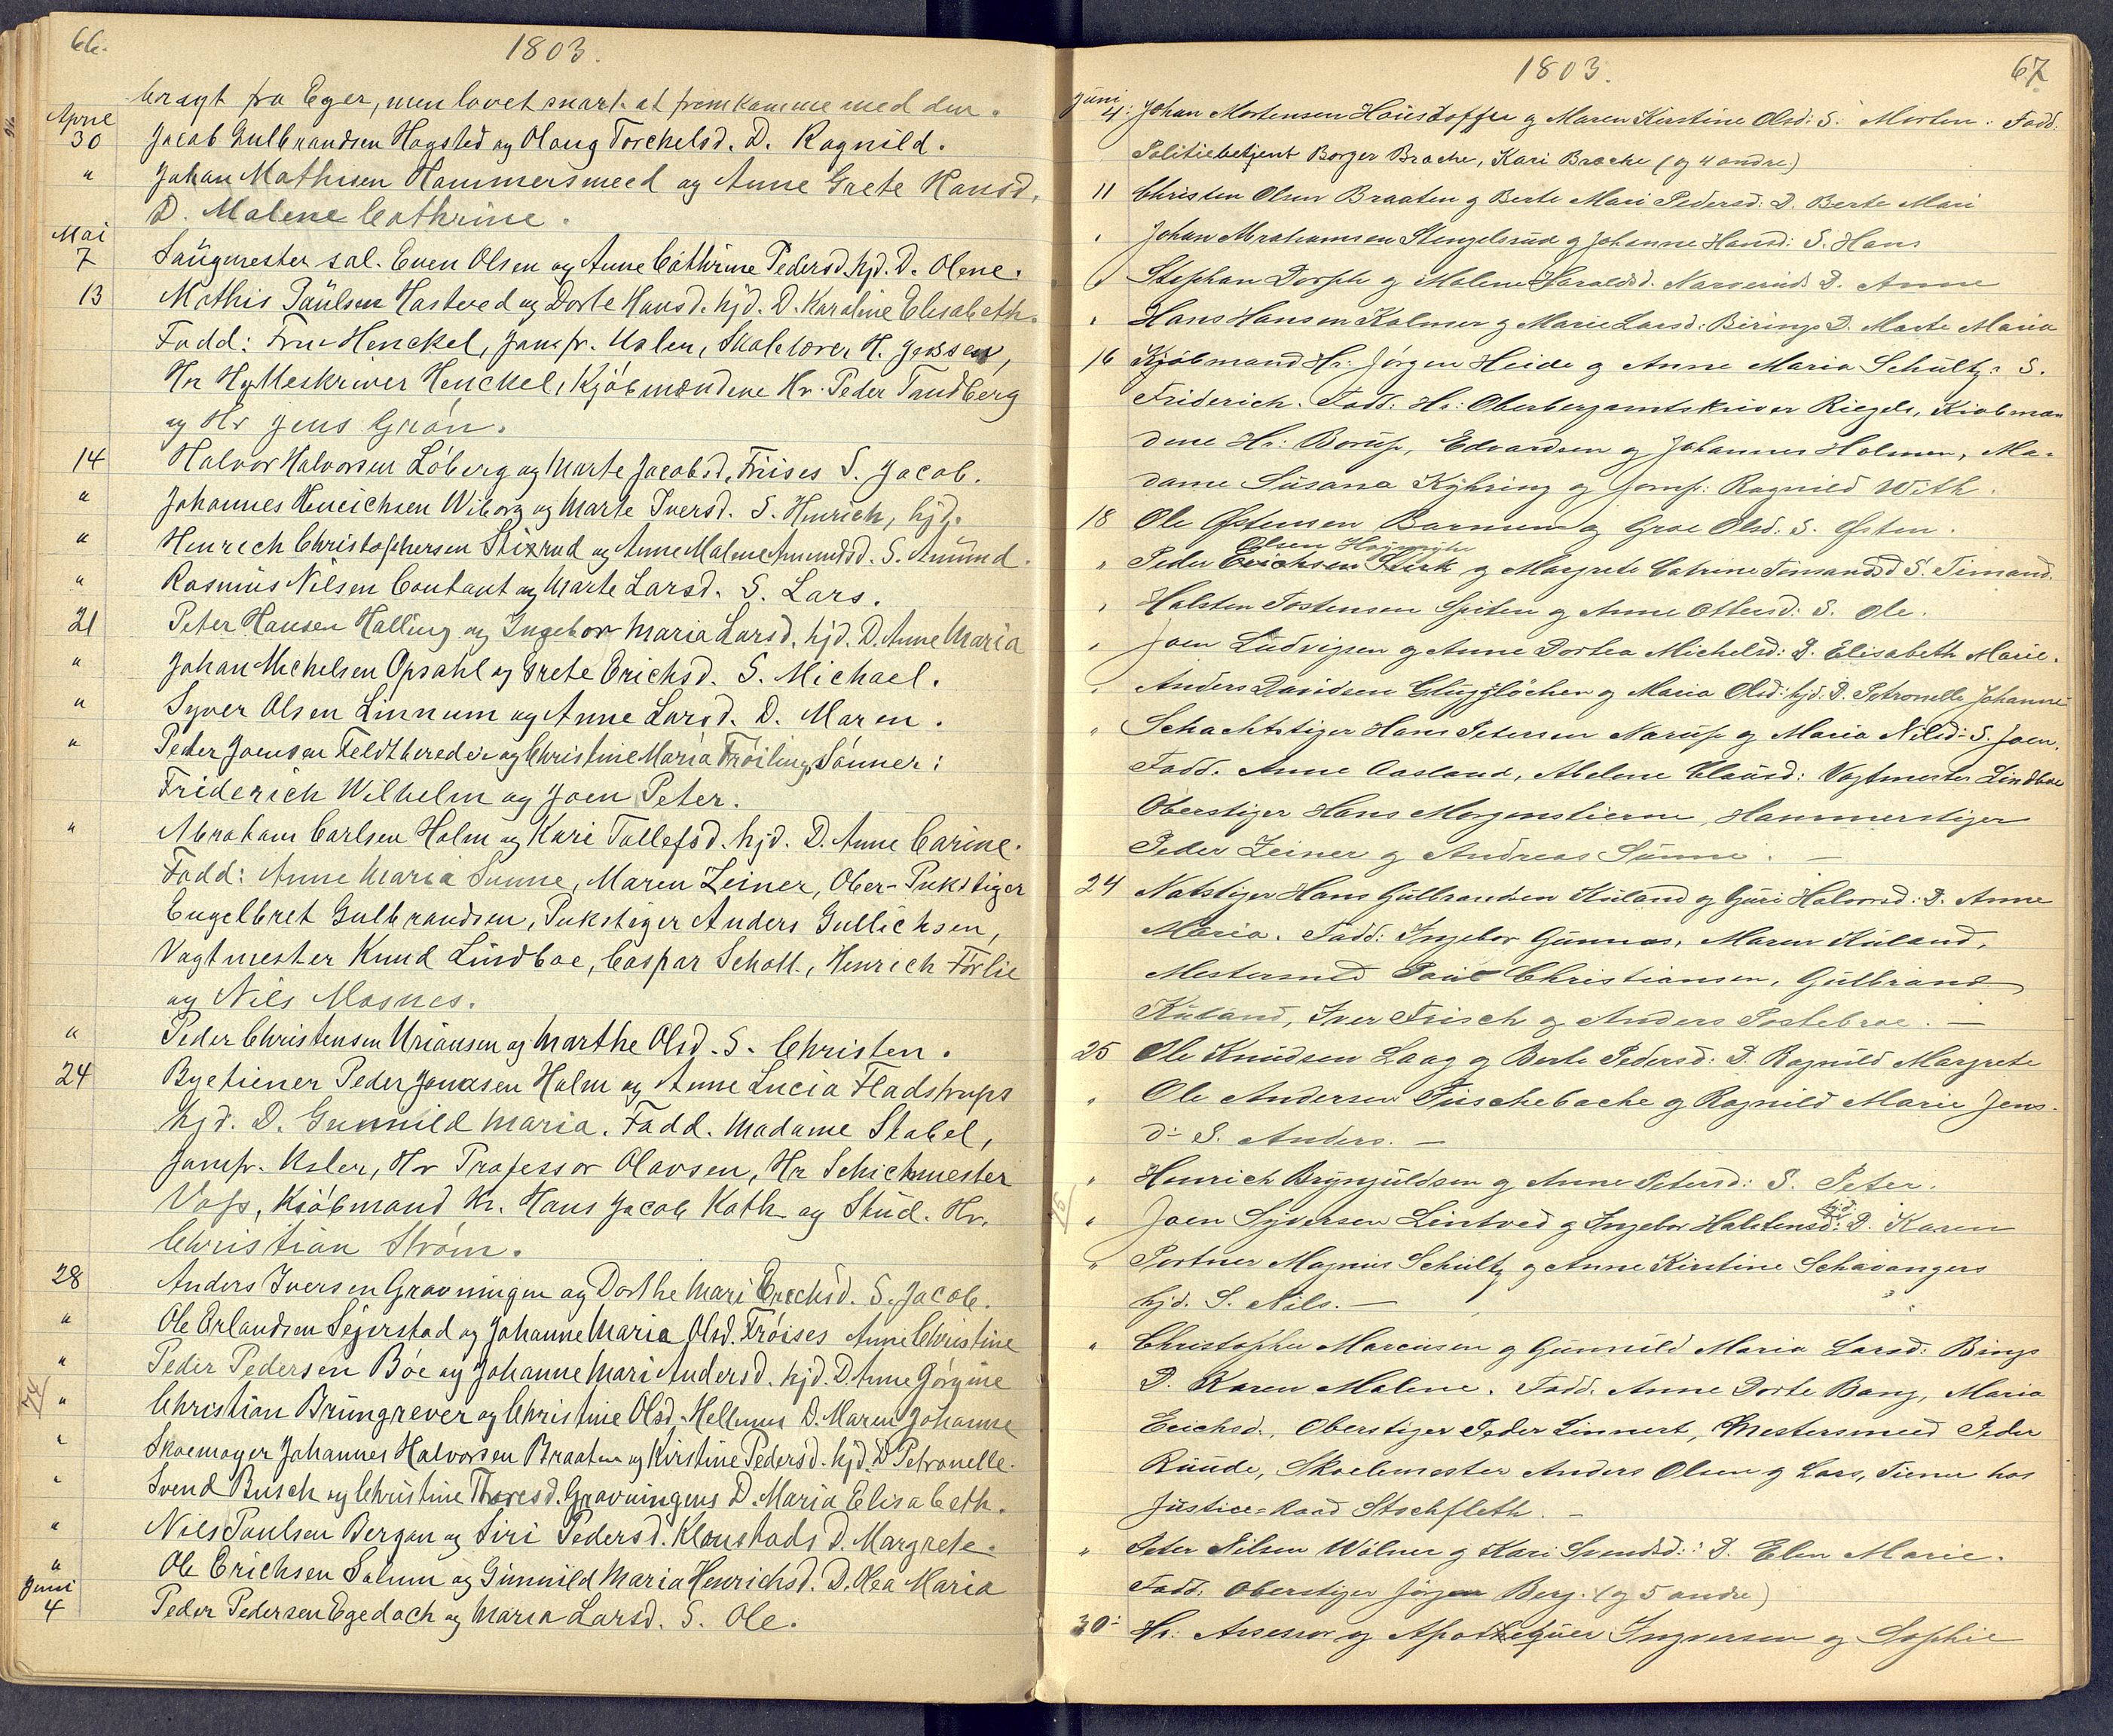 66.
1803.
bragt fra Eger, men lovet snart at fremkomme med den.
April
30 Jacob Gulbrandsen Hagsted og Olaug Torckelsd. D. Ragnild.
" Johan Mathisen Hammersmed og Anne Grete Hansd.
D. Malene Cathrine.
Mai
7 Saügmester sal. Even Olsen og Anne Cathrine Pedersd. hjd. D. Olene.
13 Mathis Paülsen Hasteved og Dorte Hansd. hjd. D. Karoline Elisabeth.
Fadd: Frue Henckel, Jomfr. Usler, Skolelærer H. Jenssen,
Hr Hytteskriver Henckel, Kjøbmændene Hr. Peder Tandberg
og Hr Jens Grøn.
14 Halvor Halvorsen Løberg og Marte Jacobsd. Friises S. Jacob.
" Johannes Henrichsen Wiborg og Marte Iversd. S. Henrich, hjd.
" Henrech Christophersen Stixrud og Anne Malene Amundsd. S. Amünd.
" Rasmus Nilsen Contant og Marte Larsd. S. Lars.
21 Peter Hansen Halling og Ingebor Maria Larsd. hjd. D. Anne Maria
" Johan Michelsen Opsahl og Grete Erichsd. S. Michael.
" Syver Olsen Linnum og Anne Larsd. D. Maren.
" Peder Joensen Feldtbereder og Christine Maria Frøilings Sønner:
Friderich Wilhelm og Joen Peter.
" Abraham Carlsen Holm og Kari Tollefsd. hjd. D. Anne Carine.
Fadd: Anne Maria Sunne, Maren Zeiner, Ober-Pukstiger
Engelbret Gulbrandsen, Pukstiger Anders Gullichsen,
Vagtmester Knud Lindboe, Caspar Scholl, Henrich Førlie
og Nils Mosnes.
" Peder Christensen Uriansen og Marthe Olsd. S. Christen.
24 Byetiener Peder Jonasen Holm og Anne Lucia Fladstrups
hjd. D. Gunnild Maria. Fadd. Madame Stabel,
Jomfr. Usler, Hr Professor Olavsen, Hr Schichmester
Voss, Kjøbmand Hr. Hans Jacob Koth og Stüd. Hr.
Christian Strøm.
28 Anders Iversen Gravningen og Dorthe Mari Erechsd. S. Jacob.
" Ole Erlandsen Sejerstad og Johanne Maria Olsd. Frøises Anne Christine
" Peder Pedersen Bøe og Johanne Mari Andersd. hjd. D. Anne Görgine
" Christian Brüngrever og Christine Olsd. Hellums D. Maren Johanne
" Skoemager Johannes Halvorsen Braaten og Kirstine Pedersd. hjd. D. Petronelle.
" Svend Busch og Christine Thoresd. Gravningens D. Maria Elisabeth.
" Nils Paulsen Bergan og Siri Pedersd. Klonstads D. Margrete.
" Ole Erichsen Solum og Günnild Maria Henrichsd. D. Olea Maria
Juni
4 Peder Pedersen Egedach og Maria Larsd. S. Ole.
1803.
67
Juni
4: Johan Mortensen Houstoffer og Maren Kirstine Olsd: S. Morten. Fadd.
Politiebetjent Borger Brache, Kari Brache (og 4 andre)
11 Christen Olsen Braaten og Berte Mari Pedersd: D. Berte Mari
" Johan Abrahamsen Stengelsrud og Johanne Hansd: S. Hans
" Stephan Dorph og Malene Haraldsd. D. Anne
" Hans Hansen Kolmer og Marie Larsd: Birings D. Marte Maria
16 Kjøbmand Hr: Jørgen Heide og Anne Maria Schultz: S.
Friderich. Fadd: Hr: Oberbergamtskriver Riegels, Kiøbmæn
dene Hr: Borup, Edvardsen og Johannes Holmen, Ma-
dame Süsana Kyhring og Jomfr: Ragnild With.
18 Ole Østensen Barmen og Groe Olsd: S. Østen.
Olsen Høymyhr
" Peder Erichsen Stirk og Margrete Catrine Timandsd S. Timand.
" Halsten Tostensen Spiten og Anne Ottersd: S. Ole.
" Joen Ludvigsen og Anne Dortea Michelsd: D. Elisabeth Marie.
" Anders Davidsen Gluggløchen og Maria Olsd: hjd. D. Petronelle Johanne
" Schachtstiger Hans Petersen Narup og Maria Nilsd: S. Joen.
Fadd. Anne Aasland, Abelone Claüsd: Vagtmester Lindboe
Oberstiger Hans Morgenstierne, Hammerstiger
Peder Zeiner og Andreas Sünne. —
24 Natstiger Hans Gülbrandsen Küland og Güri Halvorsd: D. Anne
Maria. Fadd: Ingebor Günnas, Maren Küland,
Mestersmed Povel Christiansen, Gülbrand
Küland, Iver Frisch og Anders Postebroe. —
25 Ole Knüdsen Laag og Berte Pedersd: D. Ragnild Margrete
" Ole Andersen Füschebache og Ragnild Marie Jens-
d: S. Anders. —
" Henrich Brynjüldsen og Anne Petersd: S. Peter.
" Joen Syversen Lintved og Ingebor Halstensd: hjd: D. Karen
" Portner Magnus Schultz og Anne Kirstine Schavangers
hjd. S. Nils. —
" Christopher Marcusen og Günnild Maria Larsd: Bings
D. Karen Malene. Fadd. Anne Dorte Bang, Maria
Erichsd., Oberstiger Peder Linnert, Mestersmed Peder
Rüüde, Skolemester Anders Olsen og Lars, Tiener hos
Jüstice-Raad Stochfleth. —
" Peter Nilsen Wolner og Kari Svendsd: D. Elen Marie.
Fadd. Oberstiger Jørgen Berg. (og 5 andre)
30: Hr: Assessor og Apothequer Ingversen og Sophie